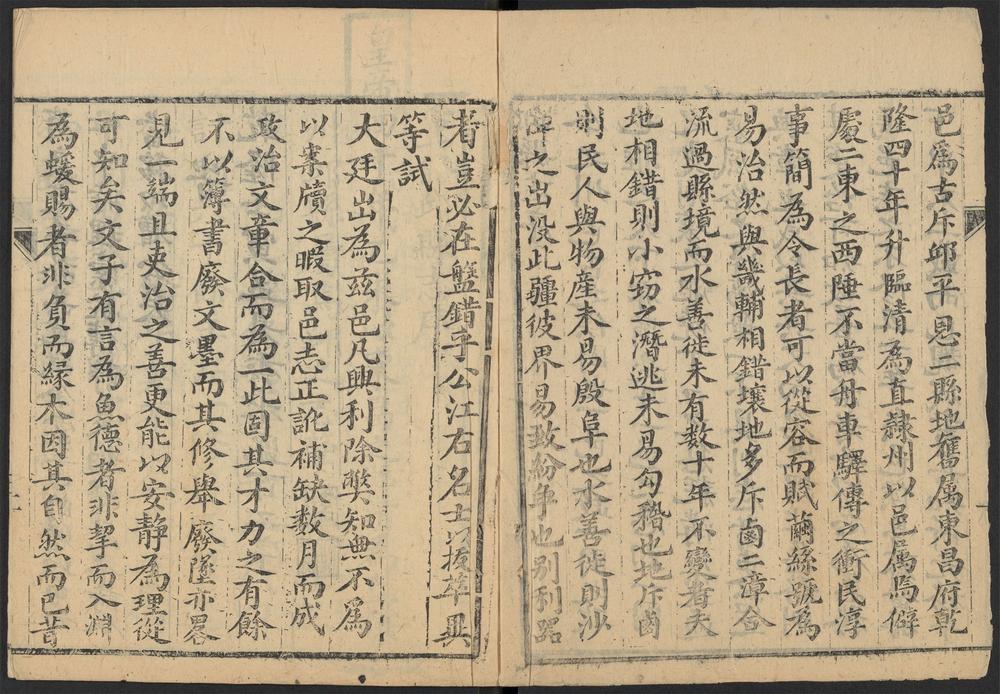 邑為古斥邱平恩二縣地舊属東昌府乾
隆四十年升臨清為直隸州以邑属焉僻
處二東之西陲不當舟車驛傳之衝民淳
事簡為令長者可以從容而賦繭絲號為
易治然與畿輔相錯壤地多斥鹵二漳合
流過縣境而水善徙未有数十年不變者夫
地相錯則小窃之潛逃未易勾稽也地斥鹵
則民人與物產未易殷阜也水善徙則沙
之出没此疆彼界易致紛争也别利器
者豈必在盤錯乎公江右名士以拔萃異
等試
大廷出為兹邑凡興利除獘知無不為
以案牘之暇取邑志正訛補缺数月而成
政治文章合而為一此固其才力之有餘
不以簿書廢文墨而其修舉廢墜亦畧
見一端且吏治之善更能以安静為理從
可知矣文子有言為魚德者非挈而入淵
為蝯賜者非負而緣木因其自然而已昔